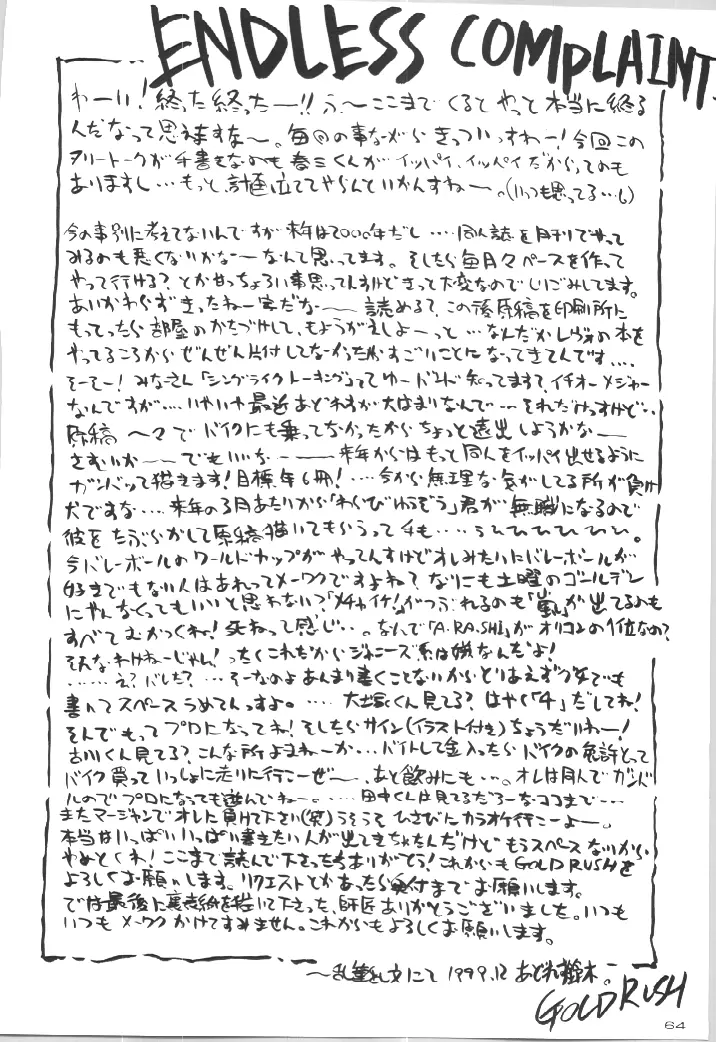 ENDLESS COMPLAINT
わーい!終った終ったー!!う〜ここまでくるとやっと本当に終る
んだなって思いますな〜。毎回の事ながらきついっすわー!今回この
フリートークが手書きなのも春三くんがイッパイ、イッパイだからってのも
ありますし…もっと計画立ててやらんといかんすねー。(いつも思ってる…)
今の事別に考えてないんですが来年は2000年だし….同人誌を月刊でやって
みるのも悪くないかな〜なんて思ってます。そしたら毎月々ペースを作って
やって行ける?とか甘っちょろい事思ってんすけどきって大変なのでしいごみしてます。
あいかわらずきったねー字だな〜 読める?この後原稿を印刷所に
もってったら部屋のかたづけして、もようがえしよーっと…なんだか の本を
やってるころからぜんぜん片付してなかったからすごいことになってきてんです….
そーそー!みなさん「シングライクトーキング」ってゆーバンド知ってます?イチオーメジャー
なんですが….いやいや最近あどれすが大はまりなんで…それだけっすけど..
原稿 〜々でバイクにも乗ってなかったからちょっと遠出しようかな〜
さむいか〜でもいいな〜 来年からはもっと同人をイッパイ出せるように
ガンバって描きます!目標年6冊!….今から無理な気がしてる所が負け
犬ですな….来年の3月あたりから「わらびゆうぞう」君が無職になるので
彼をたぶらかして原稿描いてもらうって手も…うひひひひひひ。
今バレーボールのワールドカップがやってんすけどオレみたいにバレーボールが
好きでもない人はあれってメーワクですよね?なにも土曜のゴールデン
にやんなくってもいいと思わない?「メチャイケ!」がつぶれるのも「嵐」が出てるのも
すべてむかつくね!死ねって感じ..。なんで「A.RA.SHI」がオリコンの1位なの?
そんなわけねーじゃん!ったくこれだからジャニーズ系は嫌なんだよ!
……え?バレた?…そーなのよあんまり書くことないからとりあえず字でも
書いてスペースうめてんっすよ。….大塚くん見てる?はやく「4」だしてね!
そんでもってプロになってね!そしたらサイン(イラスト付き)ちょうだいねー!
古川くん見てる?こんな所よまねーか…バイトして金入ったらバイクの免許とって
バイク買っていっしょに走りに行こーぜ〜、あと飲みにも…。オレは同人でガンバ
ルのでプロになっても遊んでねー。….田中くんは見てるだろーなココまで…
またマージャンでオレに負けて下さい(笑)うそうそひさびにカラオケ行こーよー。
本当はいっぱいいっぱい書きたい人が出てきちゃたんだけどもうスペースないから
やめとくね!ここまで読んで下さったちありがとう!これからもGOLD RUSHを
よろしくお願いします。リクエストとかあったら受付までお願いします。
では最後に裏表紙を描いて下さった、師匠ありがとうございました。いつも
いつもメーワクかけてすみません。これからもよろしくお願いします。
〜乱筆乱文にて 1999.12 あどれす鈴木。
GOLD RUSH
64